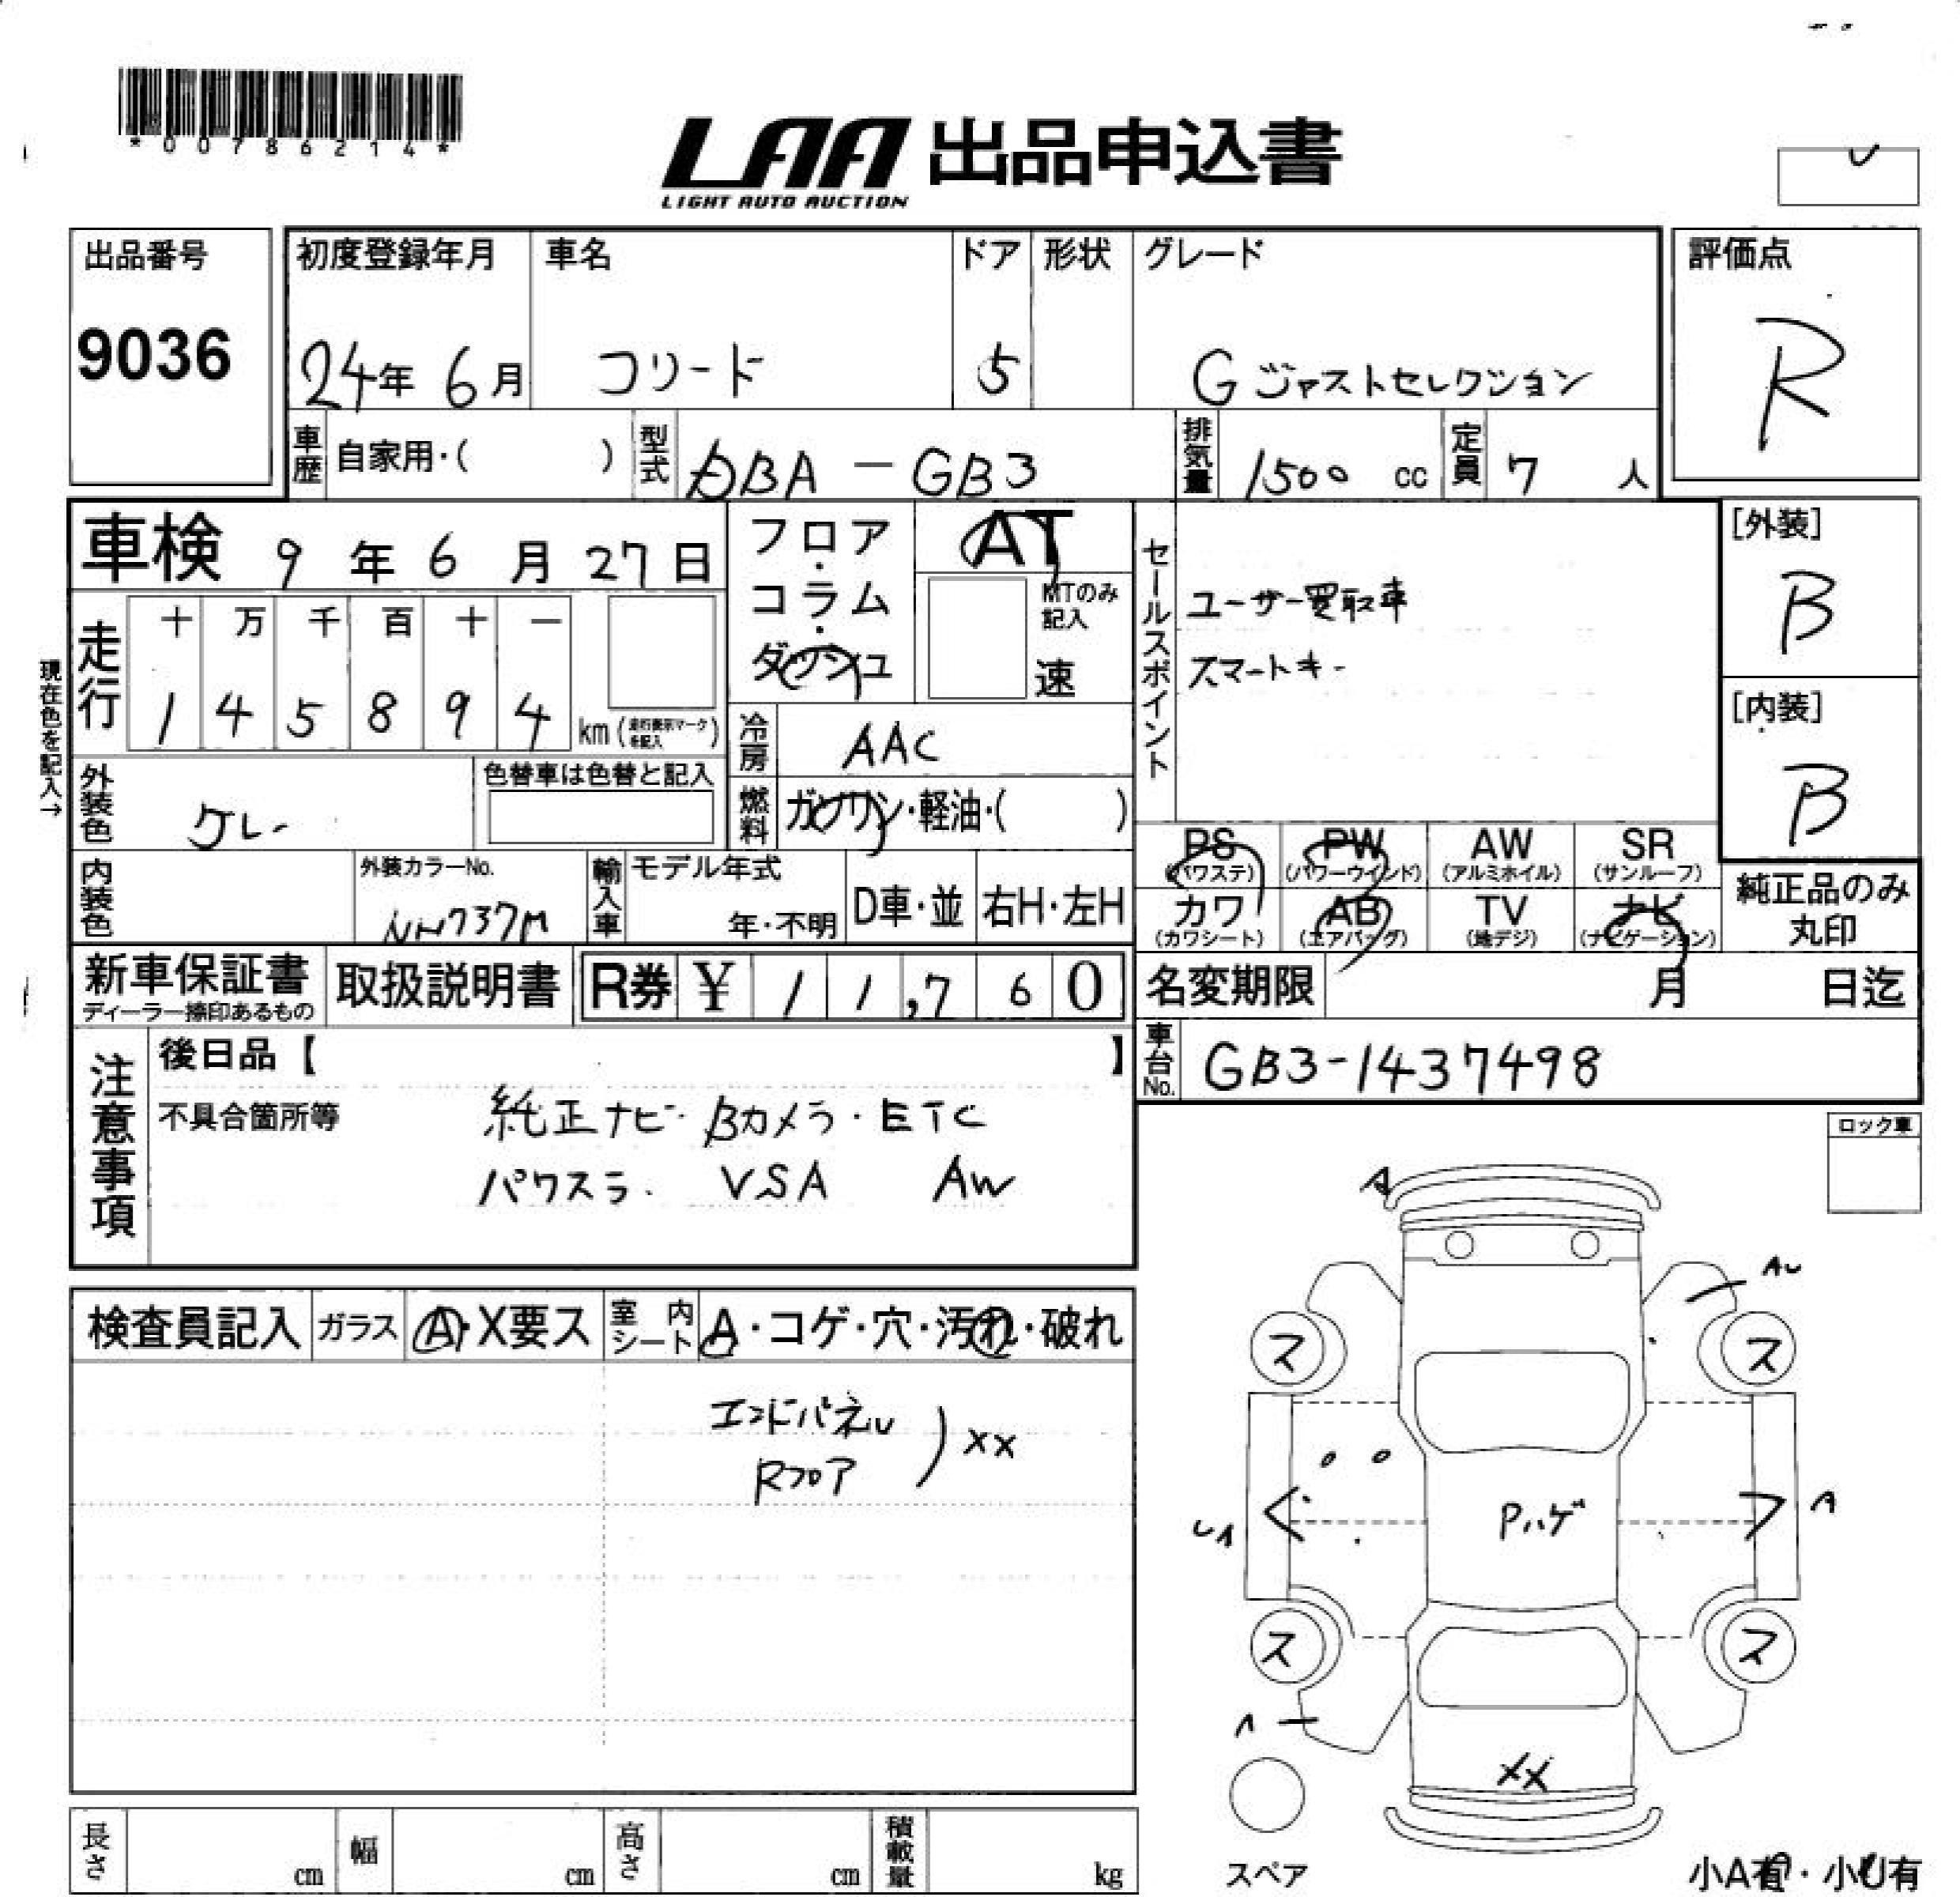 *00786214*
LAA 出品申込書
LIGHT AUTO AUCTION
出品番号
9036
初度登録年月
24年 6月
車名
フリード
ドア
5
形状
グレード
G ジャストセレクション
評価点
R
車歴
自家用・( )
型式
DBA - GB3
排気量
1500 cc
定員
7 人
車検 9年 6月 27日
現在色を記入→
走行
十 万 千 百 十 一
1 4 5 8 9 4 km (走行表示マークを記入)
フロア・コラム・ダッシュ
AT
MTのみ記入
速
冷房
AAC
燃料
ガソリン・軽油・( )
外装色
グレー
色替車は色替と記入
内装色
外装カラーNo.
NH737M
輸入車
モデル年式
年・不明
D車・並
右H・左H
セールスポイント
ユーザー買取車
スマートキー
[外装]
B
[内装]
B
PS (パワステ)
PW (パワーウインド)
AW (アルミホイル)
SR (サンルーフ)
カワ (カワシート)
AB (エアバッグ)
TV (地デジ)
ナビ (ナビゲーション)
純正品のみ丸印
新車保証書
ディーラー捺印あるもの
取扱説明書
R券 ¥ 1 1,7 6 0
名変期限 月 日迄
車台No.
GB3-1437498
注意事項
後日品【 】
不具合箇所等
純正ナビ・Bカメラ・ETC
パワスラ・ VSA AW
ロック車
検査員記入
ガラス
A・X要ス
室内シート
A・コゲ・穴・汚れ・破れ
エンドパネル
Rフロア
) XX
A
AU
ス ス
UA
Pハゲ
A
ス ス
A
XX
スペア
小A有・小U有
長さ cm
幅 cm
高さ cm
積載量 kg